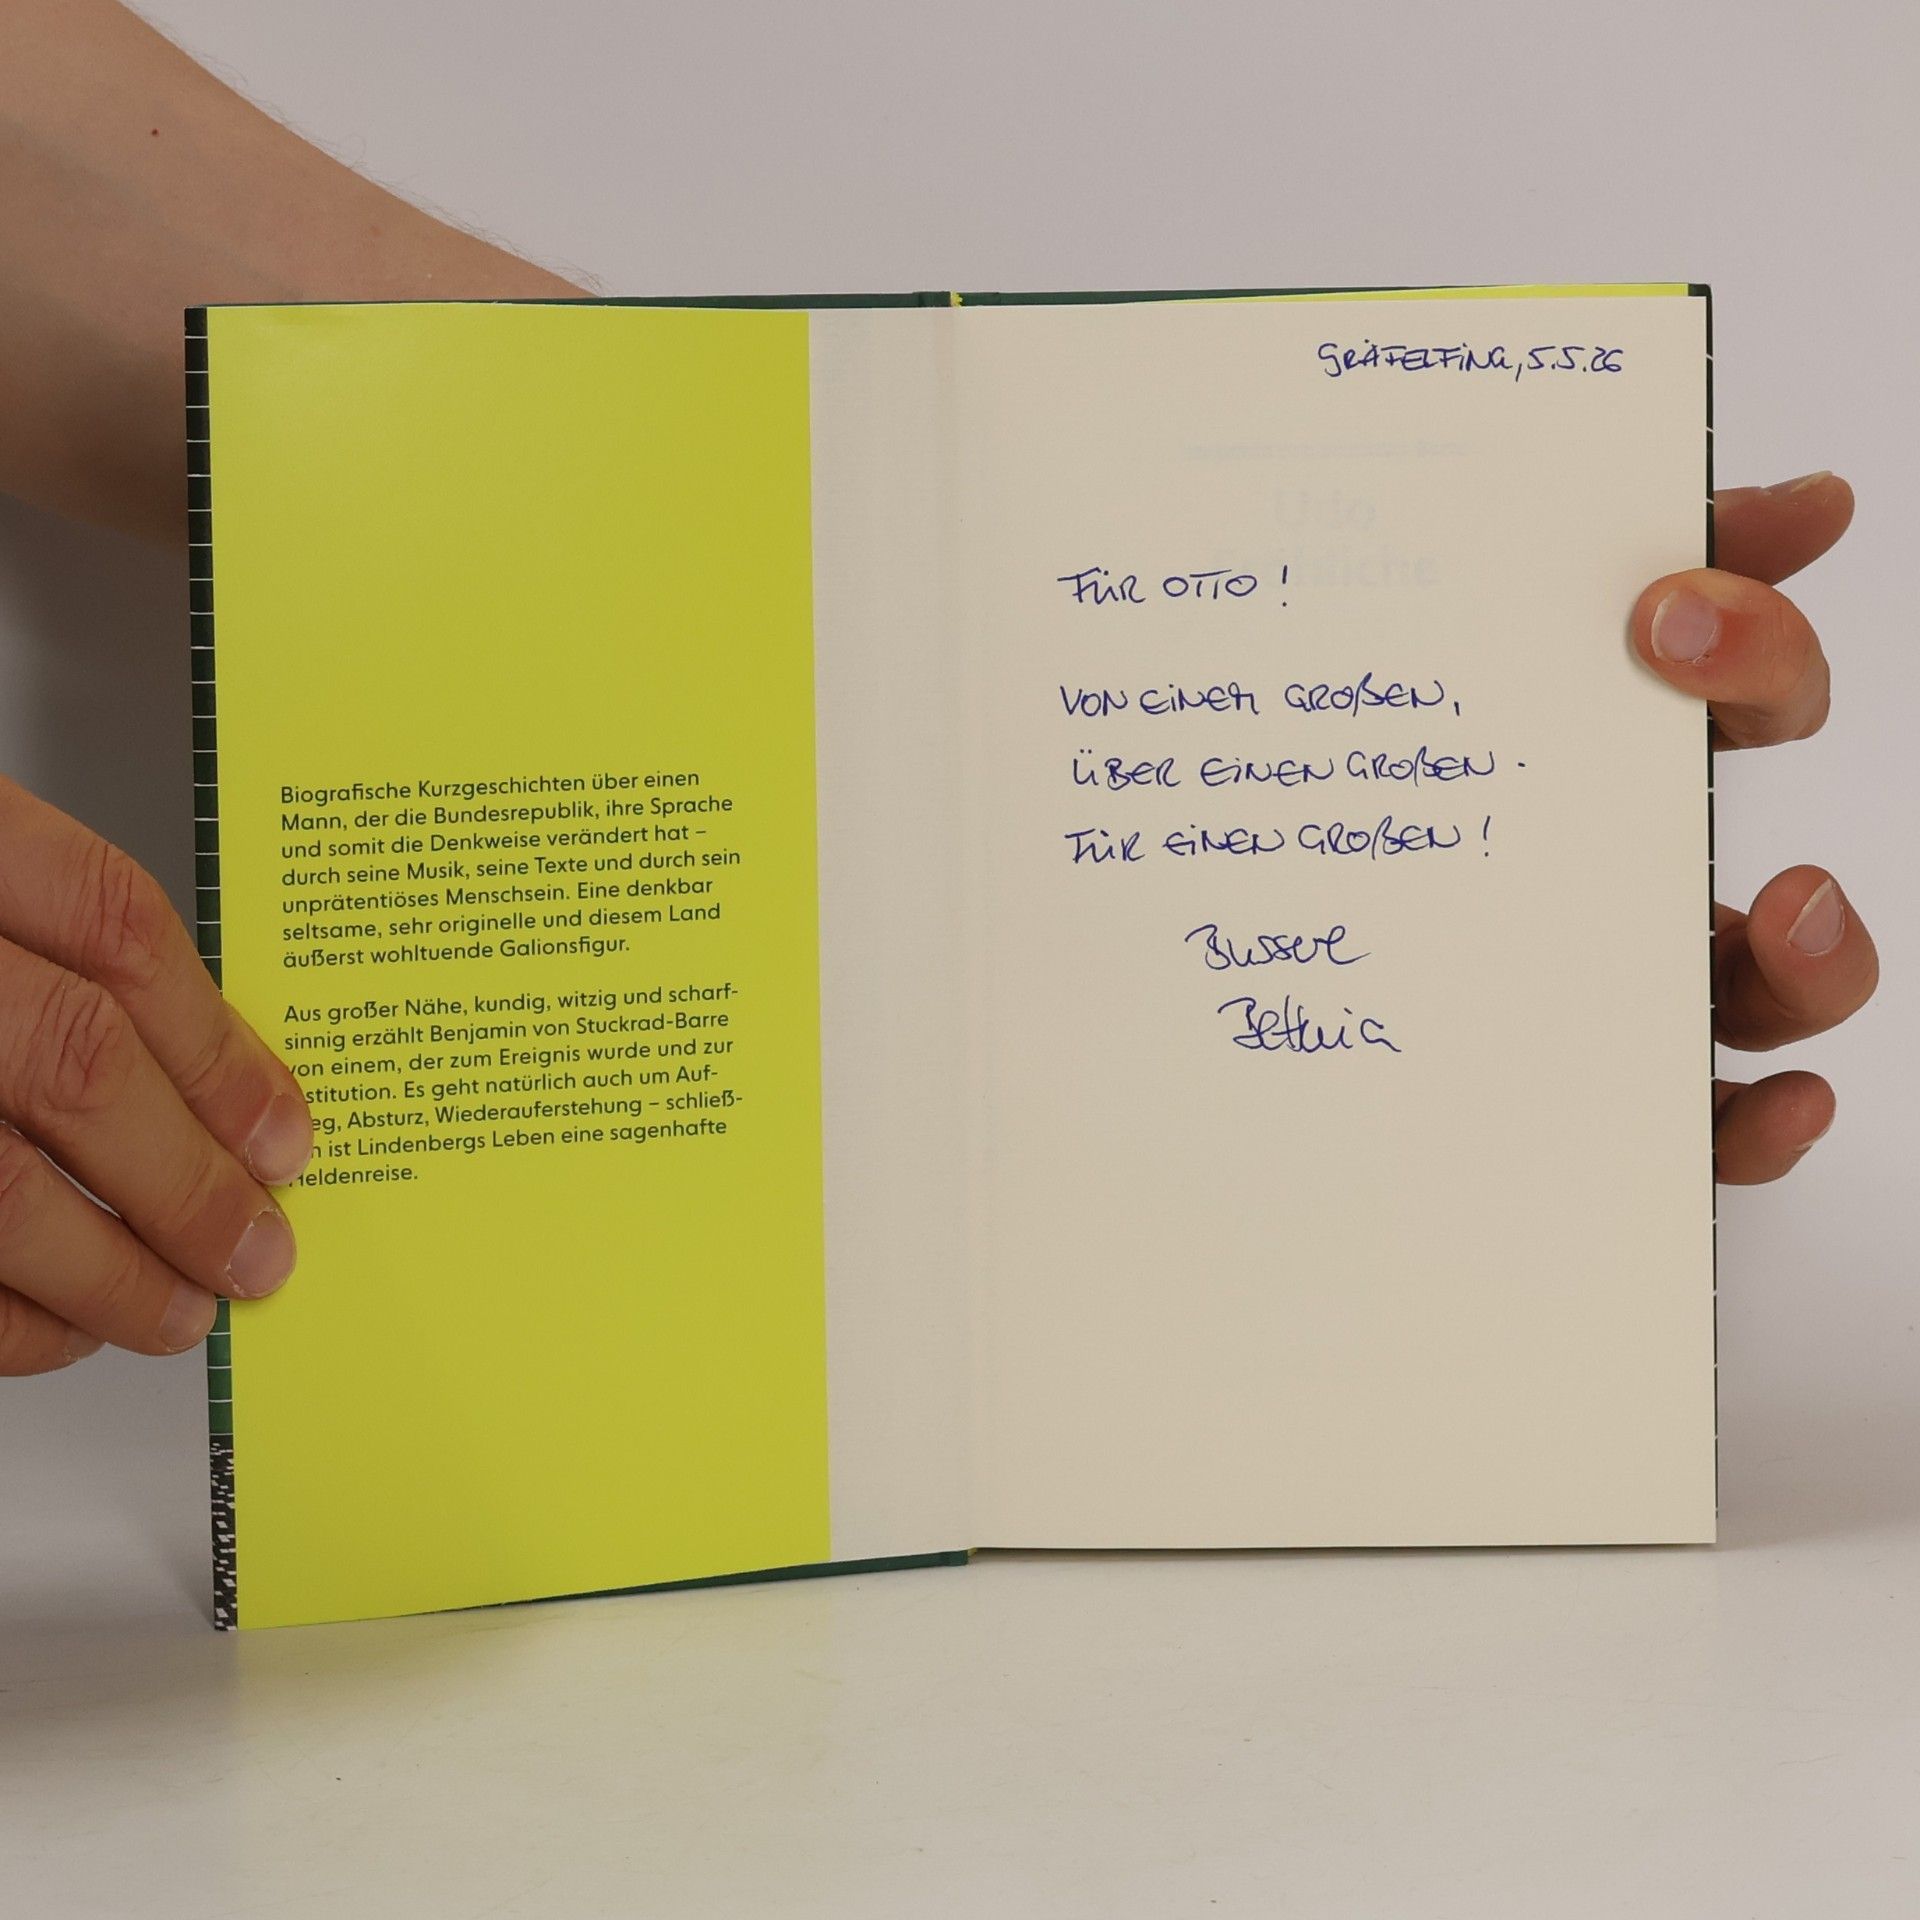 Biografische Kurzgeschichten über einen
Mann, der die Bundesrepublik, ihre Sprache
und somit die Denkweise verändert hat –
durch seine Musik, seine Texte und durch sein
unprätentiöses Menschsein. Eine denkbar
seltsame, sehr originelle und diesem Land
äußerst wohltuende Galionsfigur.
Aus großer Nähe, kundig, witzig und scharf-
sinnig erzählt Benjamin von Stuckrad-Barre
von einem, der zum Ereignis wurde und zur
stitution. Es geht natürlich auch um Auf-
eg, Absturz, Wiederauferstehung – schließ-
n ist Lindenbergs Leben eine sagenhafte
Heldenreise.
GRÄFELFING, 5.5.26
FÜR OTTO!
VON EINEM GROßEN,
ÜBER EINEN GROßEN.
FÜR EINEN GROßEN!
Busserl
Bettina